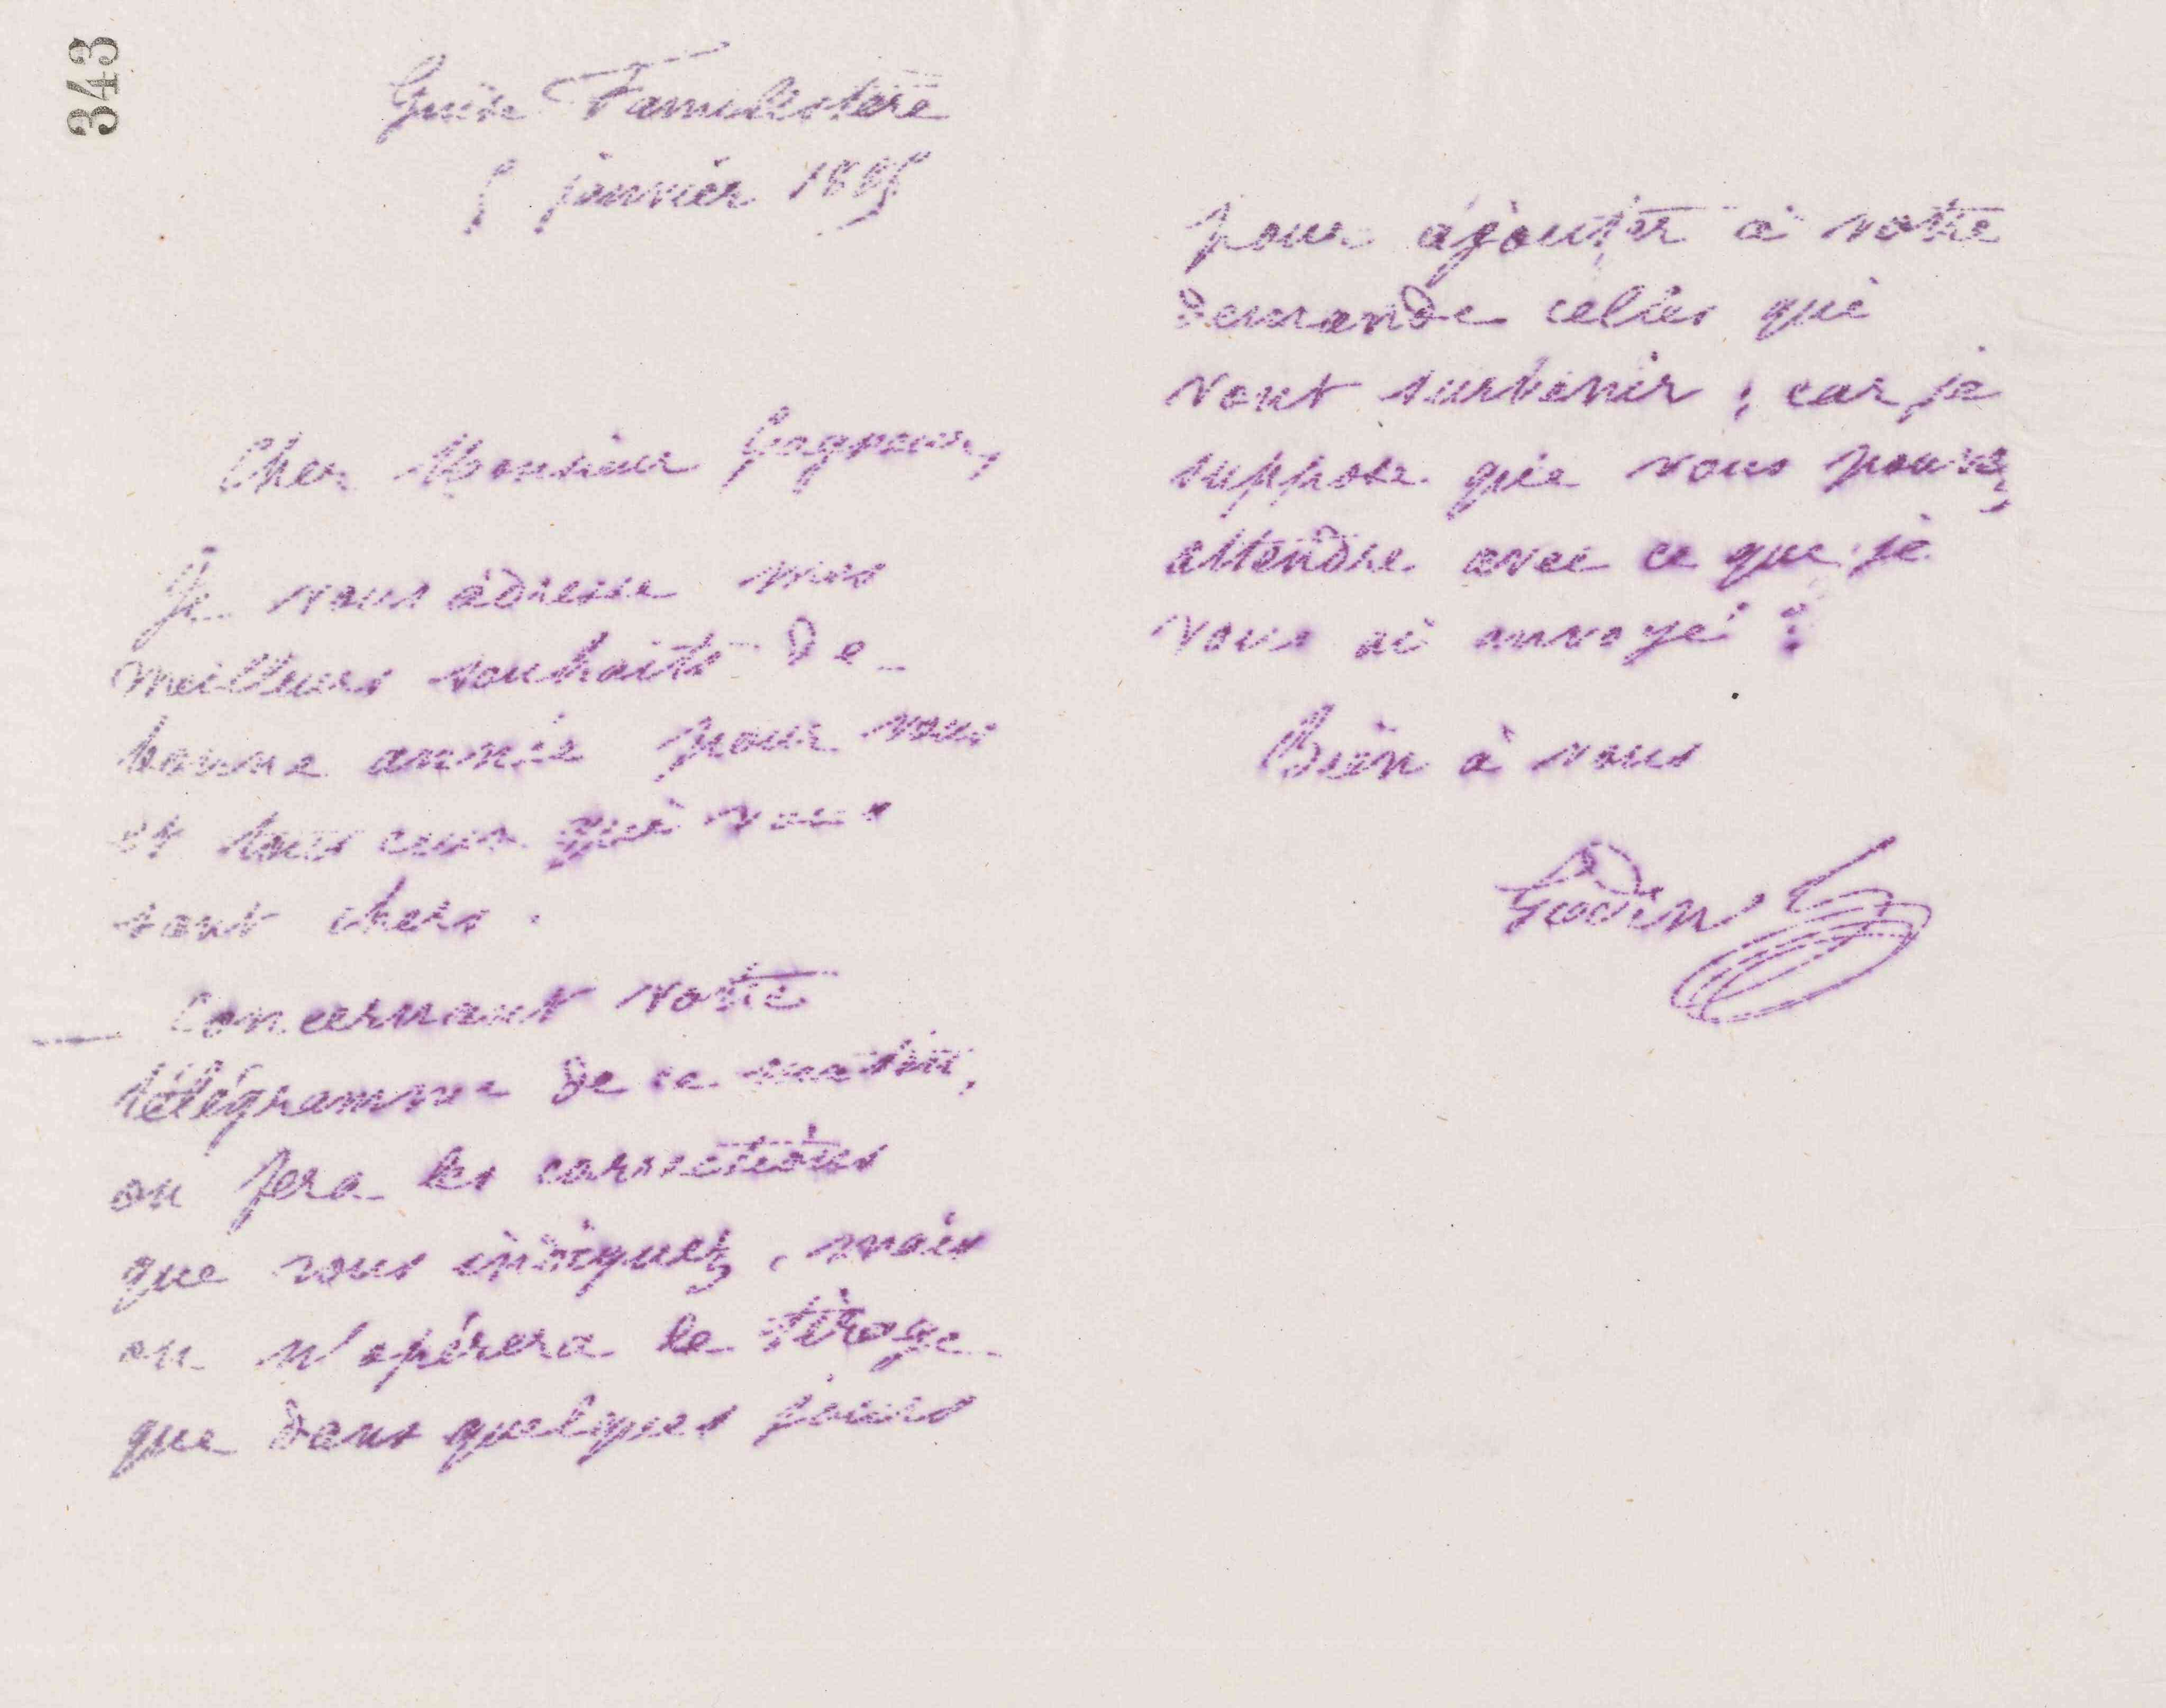 343
Guise Familistère
5 janvier 1885
Cher Monsieur Gagneur,
Je vous adresse mes
meilleurs souhaits de
bonne année pour vous
et tous ceux qui vous
sont chers.
— Concernant votre
télégramme de ce matin,
on fera les corrections
que vous indiquez, mais
on n'opérera le tirage
que dans quelques jours
pour ajouter à votre
demande celles qui
vont survenir ; car je
suppose que vous pouvez
attendre avec ce que je
vous ai envoyé ?
Bien à vous
Godin